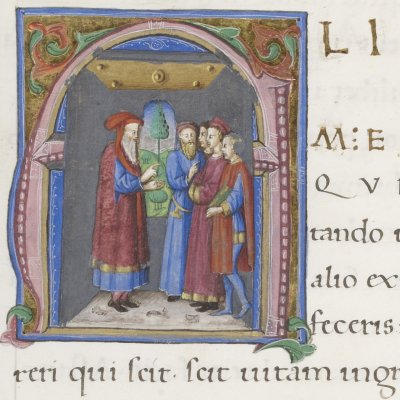 LI
M:E
QVI
tando
alio ex
feceris
reri qui scit · scit uitam ingr